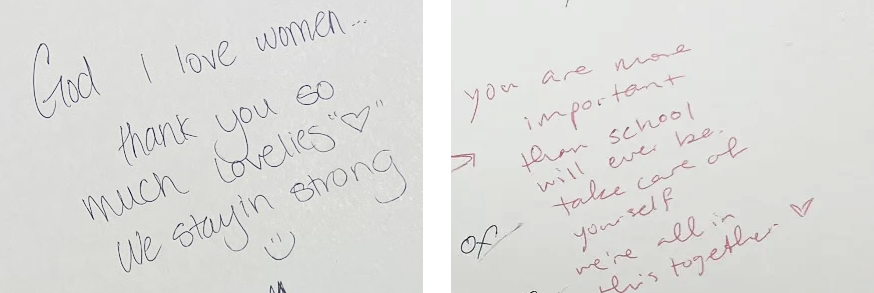 God I love women...
thank you so
much lovelies "♡"
We stayin strong
:)
you are more
important
than school
will ever be.
take care of
yourself
we're all in
this together. ♡